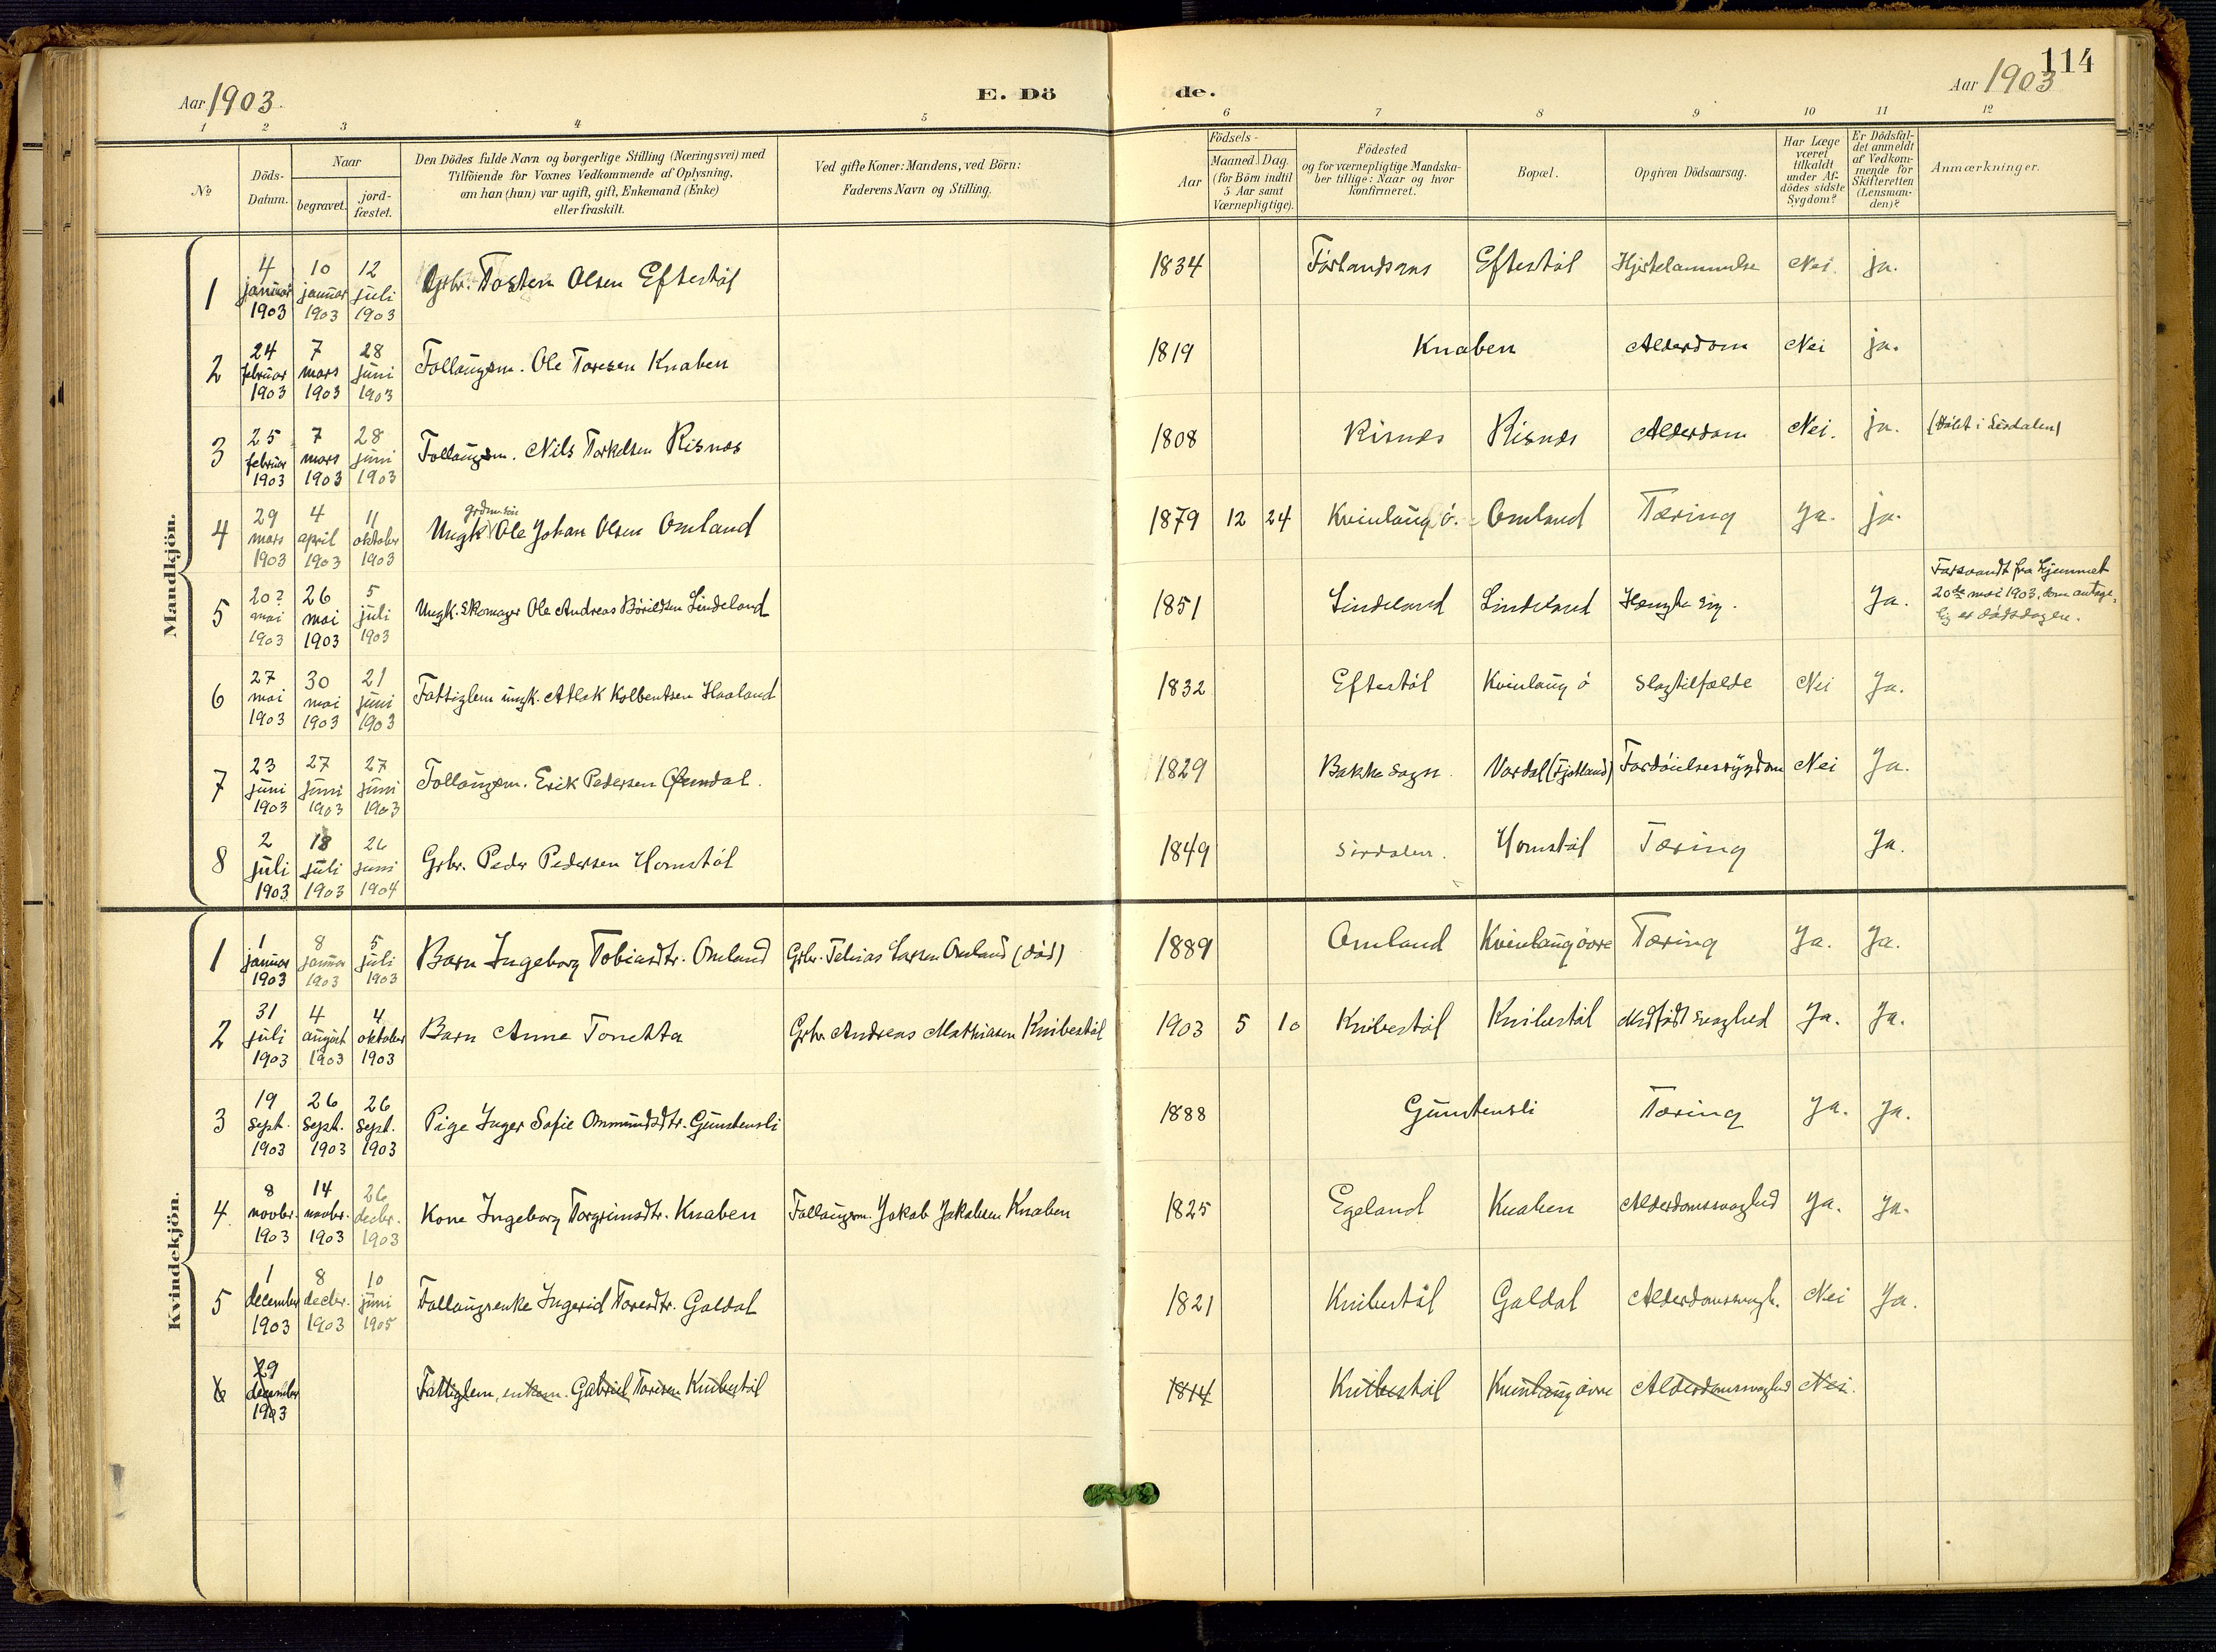 114
Aar 1903.
E. Dö
de.
Aar 1903
1 2 3 4 5 6 7 8 9 10 11 12
No
Döds-
Datum.
Naar
begravet.
jord-
fæstet.
Den Dödes fulde Navn og borgerlige Stilling (Næringsvei) med
Tilföiende for Voxnes Vedkommende af Oplysning,
om han (hun) var ugift, gift, Enkemand (Enke)
eller fraskilt.
Ved gifte Koner: Mandens, ved Börn:
Faderens Navn og Stilling.
Födsels-
Aar
Maaned Dag.
(for Börn indtil
5 Aar samt
Værnepligtige).
Födested
og for værnepligtige Mandska-
ber tillige: Naar og hvor
konfirmeret.
Bopæl.
Opgiven Dödsaarsag.
Har Læge
været
tilkaldt
under Af-
dödes sidste
Sygdom?
Er Dödsfal-
det anmeldt
af Vedkom-
mende for
Skifteretten
(Lensman-
den)?
Anmærkninger.
Mandkjön.
1 4 januar 1903 10 januar 1903 12 juli 1903 Grbr. Tosten Olsen Eftestøl 1834 Eftestøl Hjertelammelse Nei. ja.
2 24 februar 1903 7 mars 1903 28 juni 1903 Follaugsm. Ole Toresen Knaben 1819 Knaben Alderdom Nei ja.
3 25 februar 1903 7 mars 1903 28 juni 1903 Follaugsm. Nils Torkelsen Risnes 1808 Risnes Risnes Alderdom Nei. ja. (Døbt i Sirdalen)
4 29 mars 1903 4 april 1903 11 oktober 1903 Ungk. grdm.søn Ole Johan Olsen Omland 1879 12 24 Kvinlaug ø. Omland Tæring Ja. ja.
5 20? mai 1903 26 mai 1903 5 juli 1903 Ungk. Skomager Ole Andreas Børildsen Lindeland 1851 Lindeland Lindeland Hængte sig. Ja. Forsvandt fra hjemmet
20de mai 1903, som antage-
lig er dødsdagen.
6 27 mai 1903 30 mai 1903 21 juni 1903 Fattiglem ungk. Atlak Kolbentsen Haaland 1832 Eftestøl Kvinlaug ø Slagtilfælde Nei Ja.
7 23 juni 1903 27 juni 1903 27 juni 1903 Follaugsm. Erik Pedersen 1829 Bakke Sogn. Vordal (Fjotland) Fordøielsessygdom Nei Ja.
8 2 juli 1903 18 juli 1903 26 juni 1904 Grbr. Peder Pedersen Homstøl 1849 Sirdalen. Homstøl Tæring Ja.
Kvindekjön.
1 1 januar 1903 8 januar 1903 5 juli 1903 Barn Ingeborg Tobiasdtr. Omland Grbr. Tobias Larsen Omland (død) 1889 Omland Kvinlaug øvre Tæring Ja. Ja.
2 31 juli 1903 4 august 1903 4 oktober 1903 Barn Anne Tonetta Grbr. Andreas Mathiasen Knibestøl 1903 5 10 Knibestøl Knibestøl Medfødt svaghed Ja. Ja.
3 19 sept. 1903 26 sept. 1903 26 sept. 1903 Pige Inger Sofie Ommundsdtr. Gunstensli 1888 Gunstensli Tæring Ja. Ja.
4 8 novbr. 1903 14 novbr. 1903 26 decbr. 1903 Kone Ingeborg Torgrimsdtr. Knaben Follaugsm. Jakob Jakobsen Knaben 1825 Egeland Knaben Alderdomssvaghed Ja. Ja.
5 1 december 1903 8 decbr. 1903 10 juni 1905 Follaugsenke Ingerid Toresdtr. Galdal 1821 Knibestøl Galdal Alderdomssvagh. Nei Ja.
6 29 december 1903 Fattiglem, enkem. Gabriel Toresen Knibestøl 1814 Knibestøl Kvinlaug øvre Alderdomssvaghed Nei.